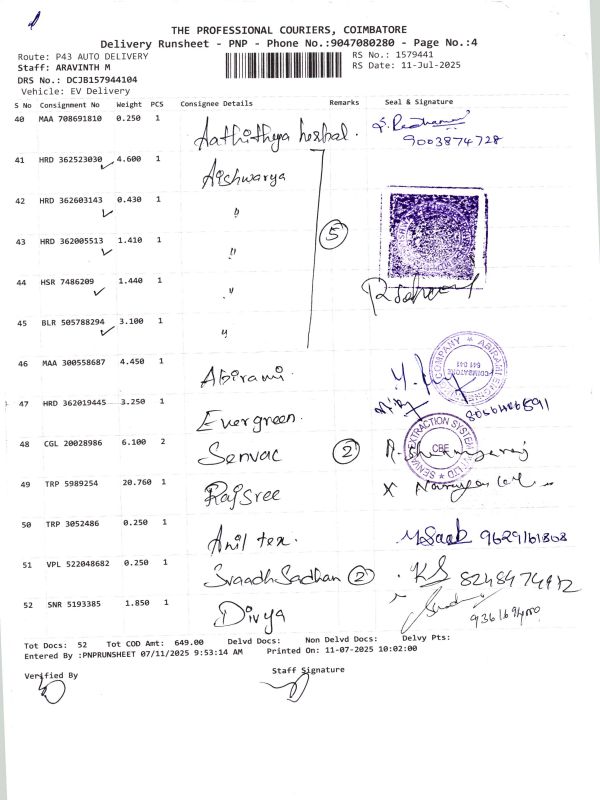 THE PROFESSIONAL COURIERS, COIMBATORE
Delivery Runsheet - PNP - Phone No.:9047080280 - Page No.:4
Route: P43 AUTO DELIVERY
RS No.: 1579441
Staff: ARAVINTH M
RS Date: 11-Jul-2025
DRS No.: DCJB157944104
Vehicle: EV Delivery
S No Consignment No Weight PCS Consignee Details Remarks Seal & Signature
40 MAA 708691810 0.250 1 Aathithya herbal.
9003874728
41 HRD 362523030 4.600 1 Aishwarya
42 HRD 362603143 0.430 1 "
43 HRD 362005513 1.410 1 " 5
44 HSR 7486209 1.440 1 "
45 BLR 505788294 3.100 1 "
46 MAA 300558687 4.450 1 Abirami.
47 HRD 362019445 3.250 1 Evergreen.
48 CGL 20028986 6.100 2 Senvac 2
49 TRP 5989254 20.760 1 Rajsree
50 TRP 3052486 0.250 1 Anil tex. 9629161808
51 VPL 522048682 0.250 1 SvaadhSadhan 2 KS
52 SNR 5193385 1.850 1 Divya
Tot Docs: 52 Tot COD Amt: 649.00 Delvd Docs: Non Delvd Docs: Delvy Pts:
Entered By :PNPRUNSHEET 07/11/2025 9:53:14 AM Printed On: 11-07-2025 10:02:00
Verified By
Staff Signature